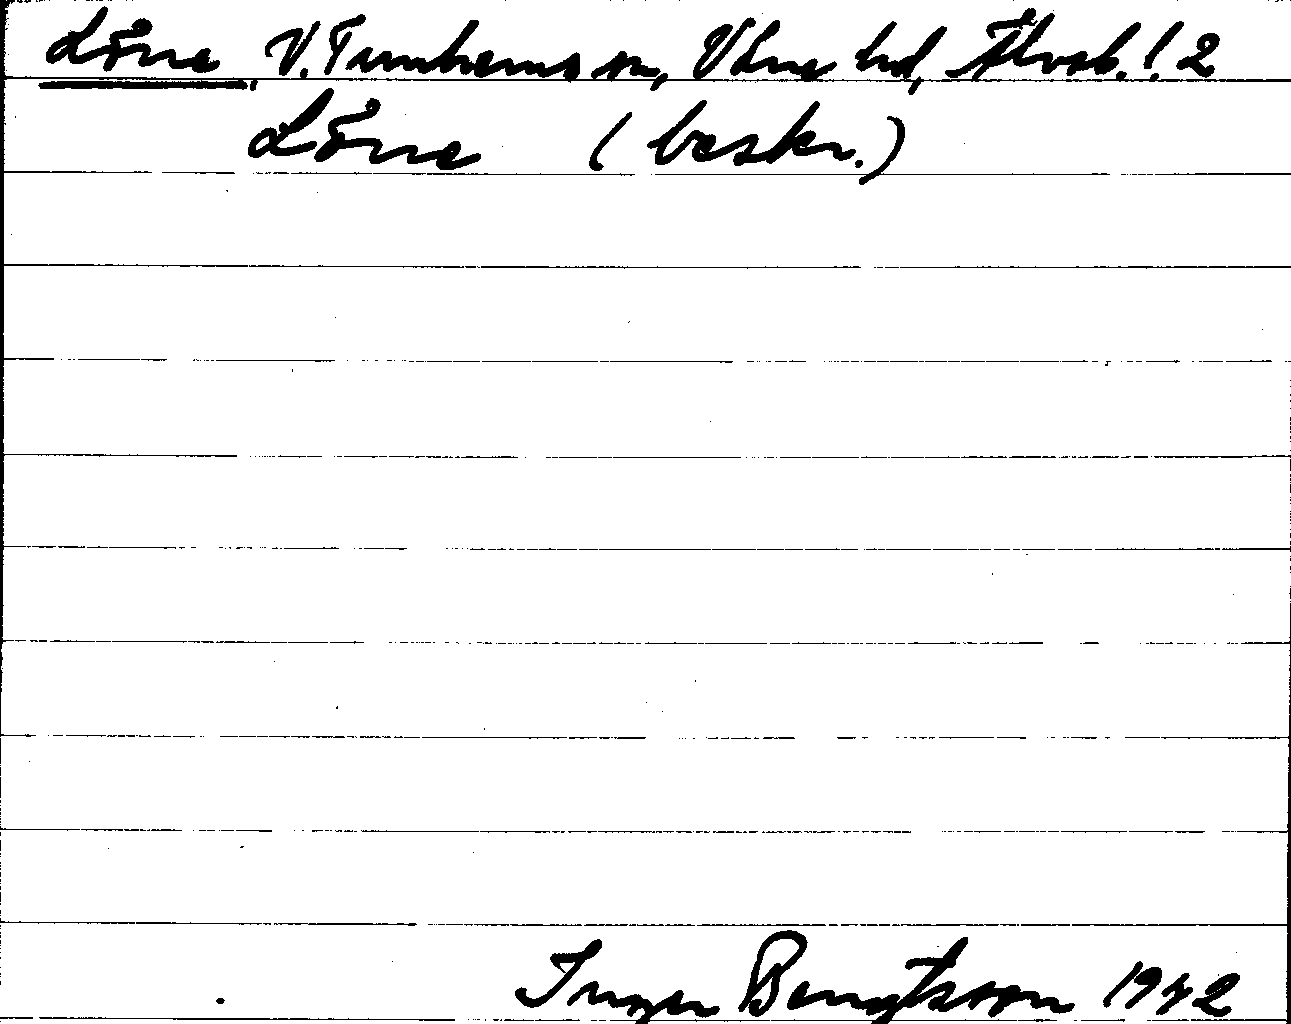 Lörre V. Tunhems sn, Väne hd, Älvsb. ! 2
Lörre ( beskr.)
Inger Bengtsson 1942